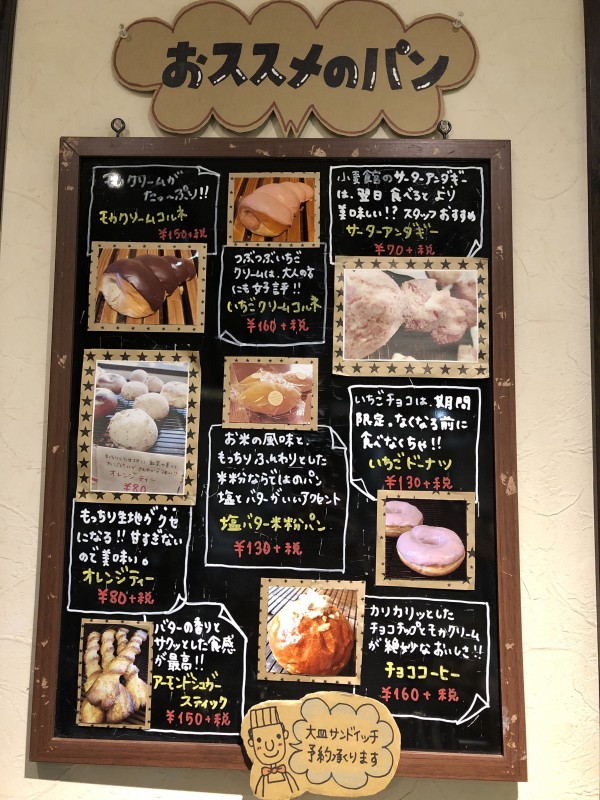 おススメのパン
モカクリームが
たっ〜ぷり!!
モカクリームコルネ
¥150+税
つぶつぶいちご
クリームは、大人の方
にも好評!!
いちごクリームコルネ
¥160+税
小麦館のサーターアンダギー
は、翌日食べるとより
美味しい!?スタッフおすすめ
サーターアンダギー
¥70+税
オレンジティー
¥80
もっちり生地がクセ
になる!!甘すぎない
ので美味い。
オレンジティー
¥80+税
お米の風味と、
もっちりふんわりとした
米粉ならではのパン
塩とバターがいいアクセント
塩バター米粉パン
¥130+税
いちごチョコは、期間
限定。なくなる前に
食べなくちゃ!!
いちごドーナツ
¥130+税
バターの香りと
サクッとした食感
が最高!!
アーモンドシュガー
スティック
¥150+税
カリカリッとした
チョコチップとモカクリーム
が絶妙なおいしさ!!
チョココーヒー
¥160+税
大皿サンドイッチ
予約承ります